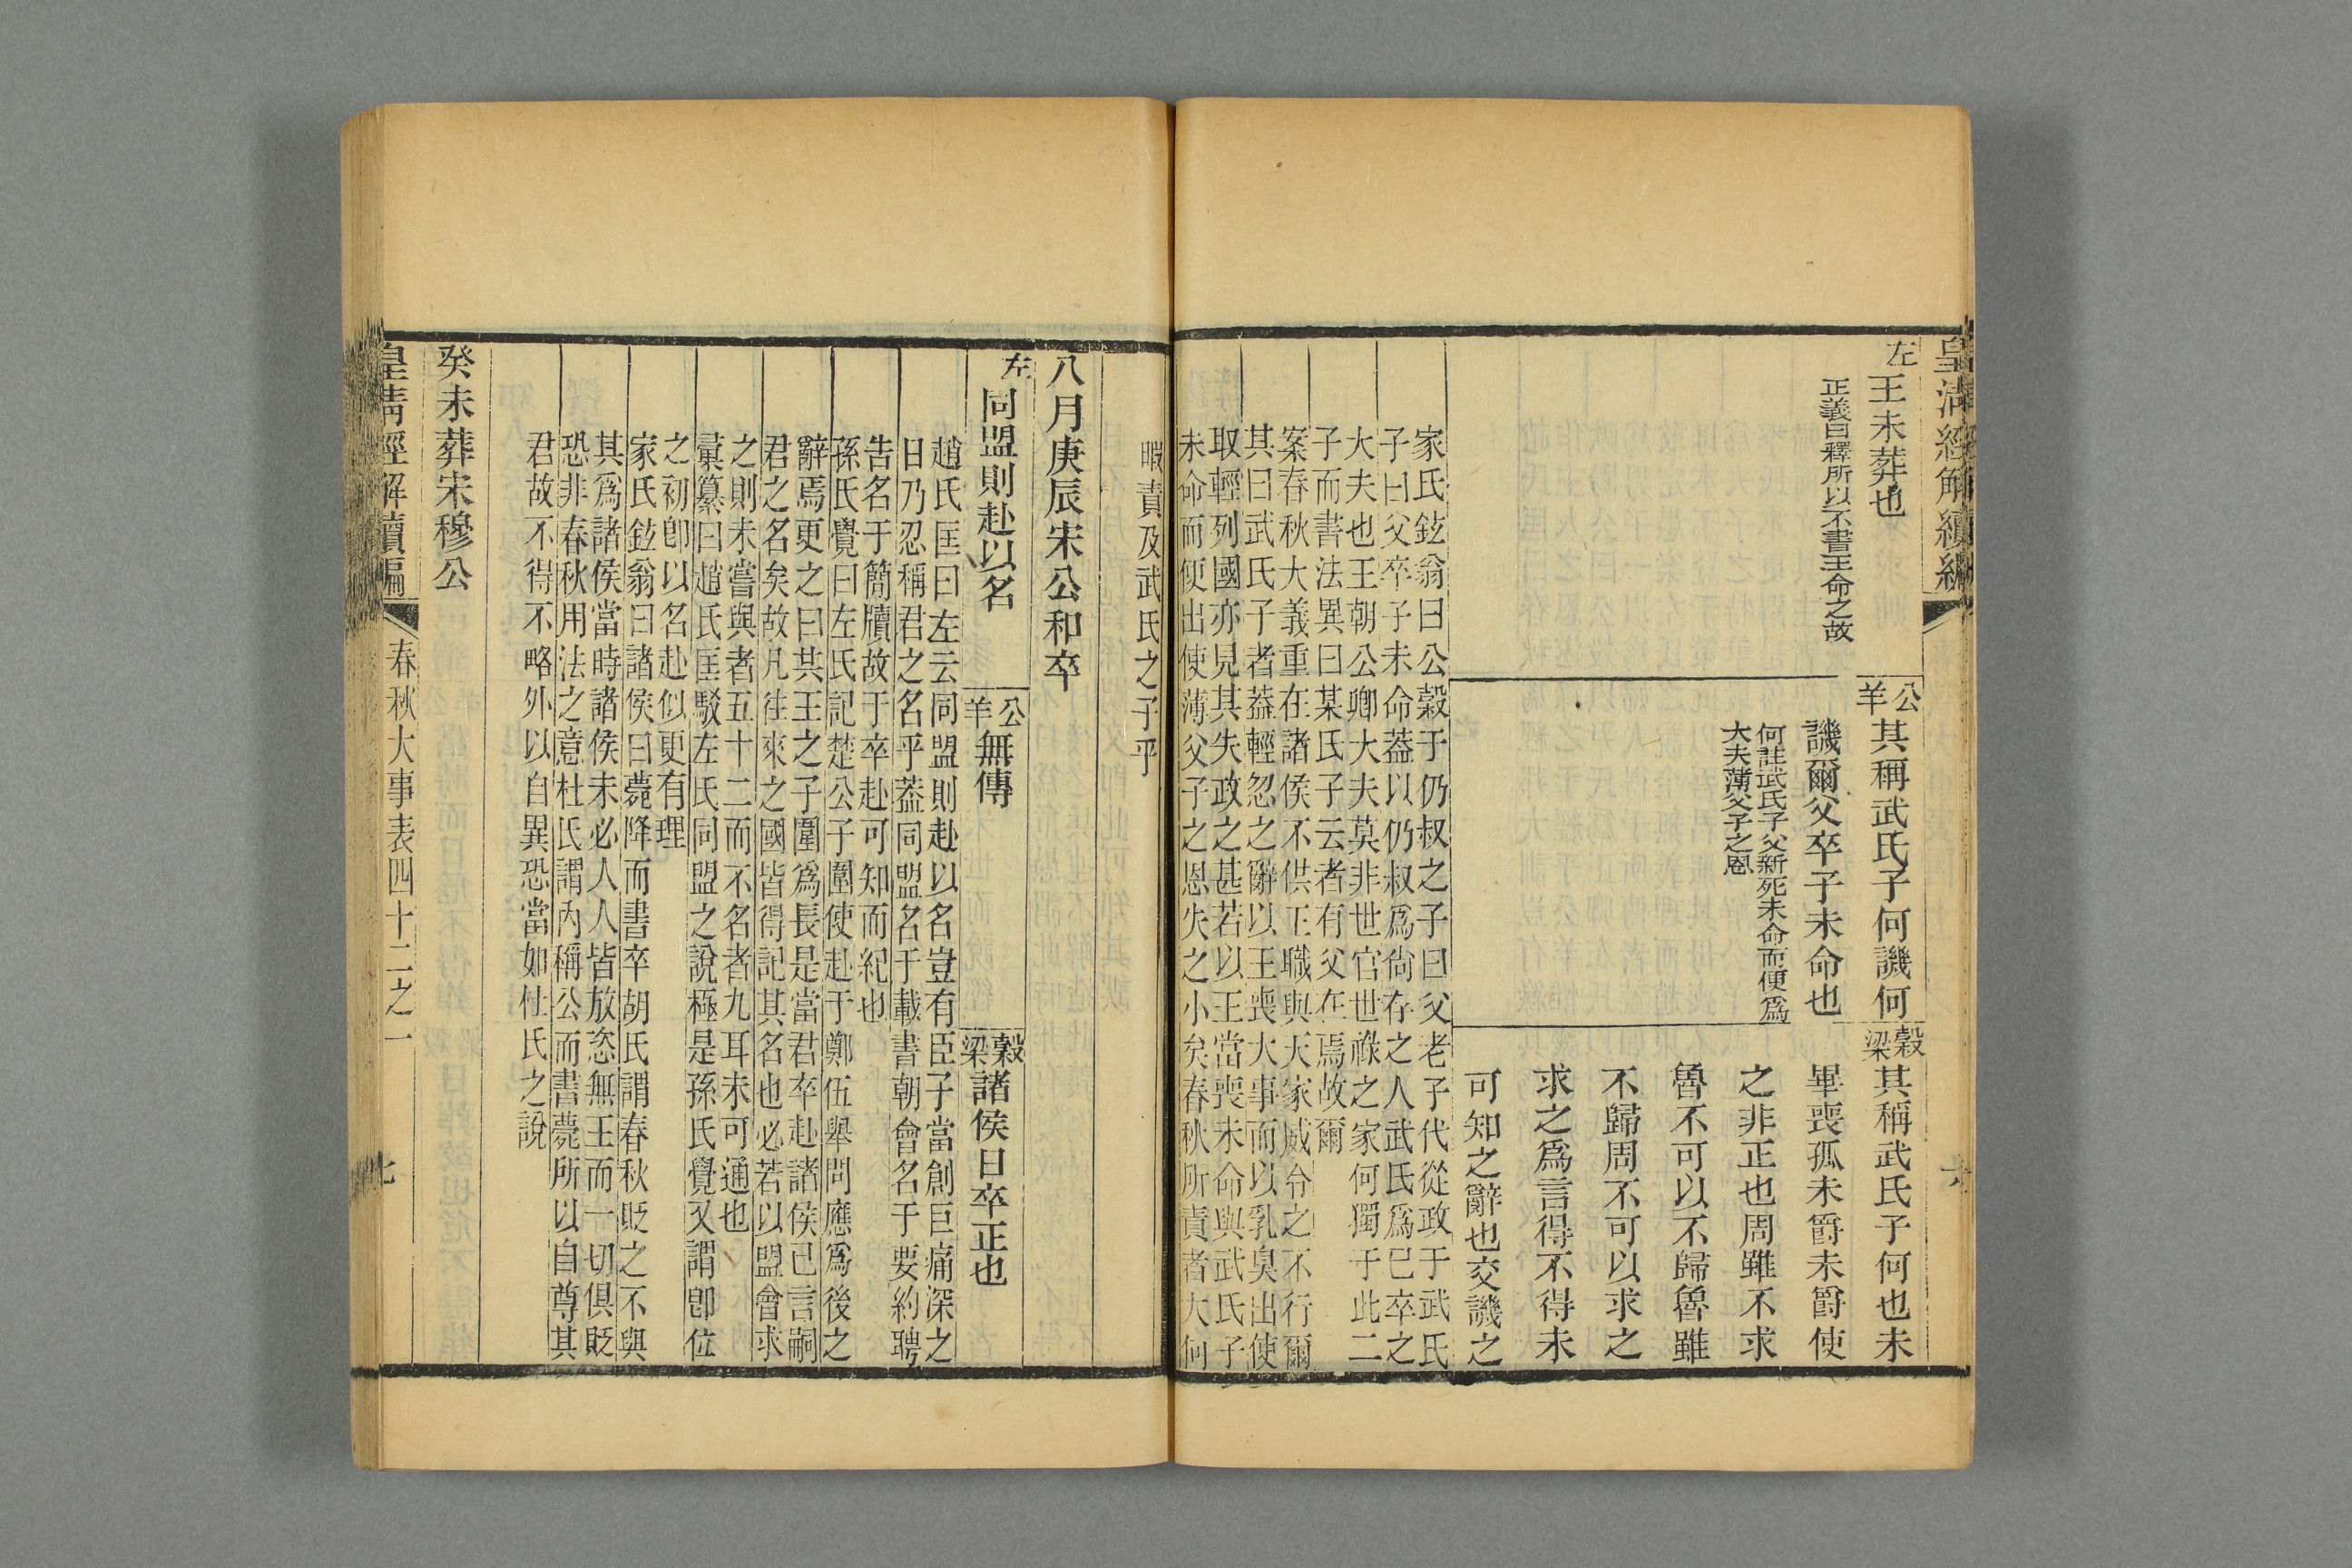 皇清經解續編
左
王未葬也
正義曰釋所以不書王命之故
公羊
其稱武氏子何譏何
譏爾父卒子未命也
何註武氏子父新死未命而便爲
大夫薄父子之恩
穀梁
其稱武氏子何也未
畢喪孤未爵未爵使
之非正也周雖不求
魯不可以不歸魯雖
不歸周不可以求之
求之爲言得不得未
可知之辭也交譏之
家氏鉉翁曰公穀于仍叔之子曰父老子代從政于武氏
子曰父卒子未命葢以仍叔爲尙存之人武氏爲已卒之
大夫也王朝公卿大夫莫非世官世祿之家何獨于此二
子而書法異曰某氏子云者有父在焉故爾
案春秋大義重在諸侯不供王職與天家威令之不行爾
其曰武氏子者葢輕忽之辭以王喪大事而以乳臭出使
取輕列國亦見其失政之甚若以王當喪未命與武氏子
未命而便出使薄父子之恩失之小矣春秋所責者大何
六
暇責及武氏之子乎
八月庚辰宋公和卒
左
同盟則赴以名
公羊
無傳
穀梁
諸侯日卒正也
趙氏匡曰左云同盟則赴以名豈有臣子當創巨痛深之
日乃忍稱君之名乎葢同盟名于載書朝會名于要約聘
告名于簡牘故于卒赴可知而紀也
孫氏覺曰左氏記楚公子圍使赴于鄭伍舉問應爲後之
辭焉更之曰共王之子圍爲長是當君卒赴諸侯已言嗣
君之名矣故凡往來之國皆得記其名也必若以盟會求
之則未嘗與者五十二而不名者九耳未可通也
彙纂曰趙氏匡駁左氏同盟之說極是孫氏覺又謂卽位
之初卽以名赴似更有理
家氏鉉翁曰諸侯曰薨降而書卒胡氏謂春秋貶之不與
其爲諸侯當時諸侯未必人人皆放恣無王而一切俱貶
恐非春秋用法之意杜氏謂內稱公而書薨所以自尊其
君故不得不略外以自異恐當如杜氏之說
癸未葬宋穆公
皇清經解續編
春秋大事表四十二之一
七